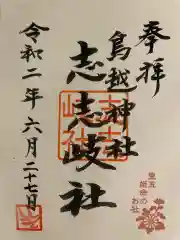 奉拝
鳥越神社
志志岐社
令和二年六月二十七日
のお社